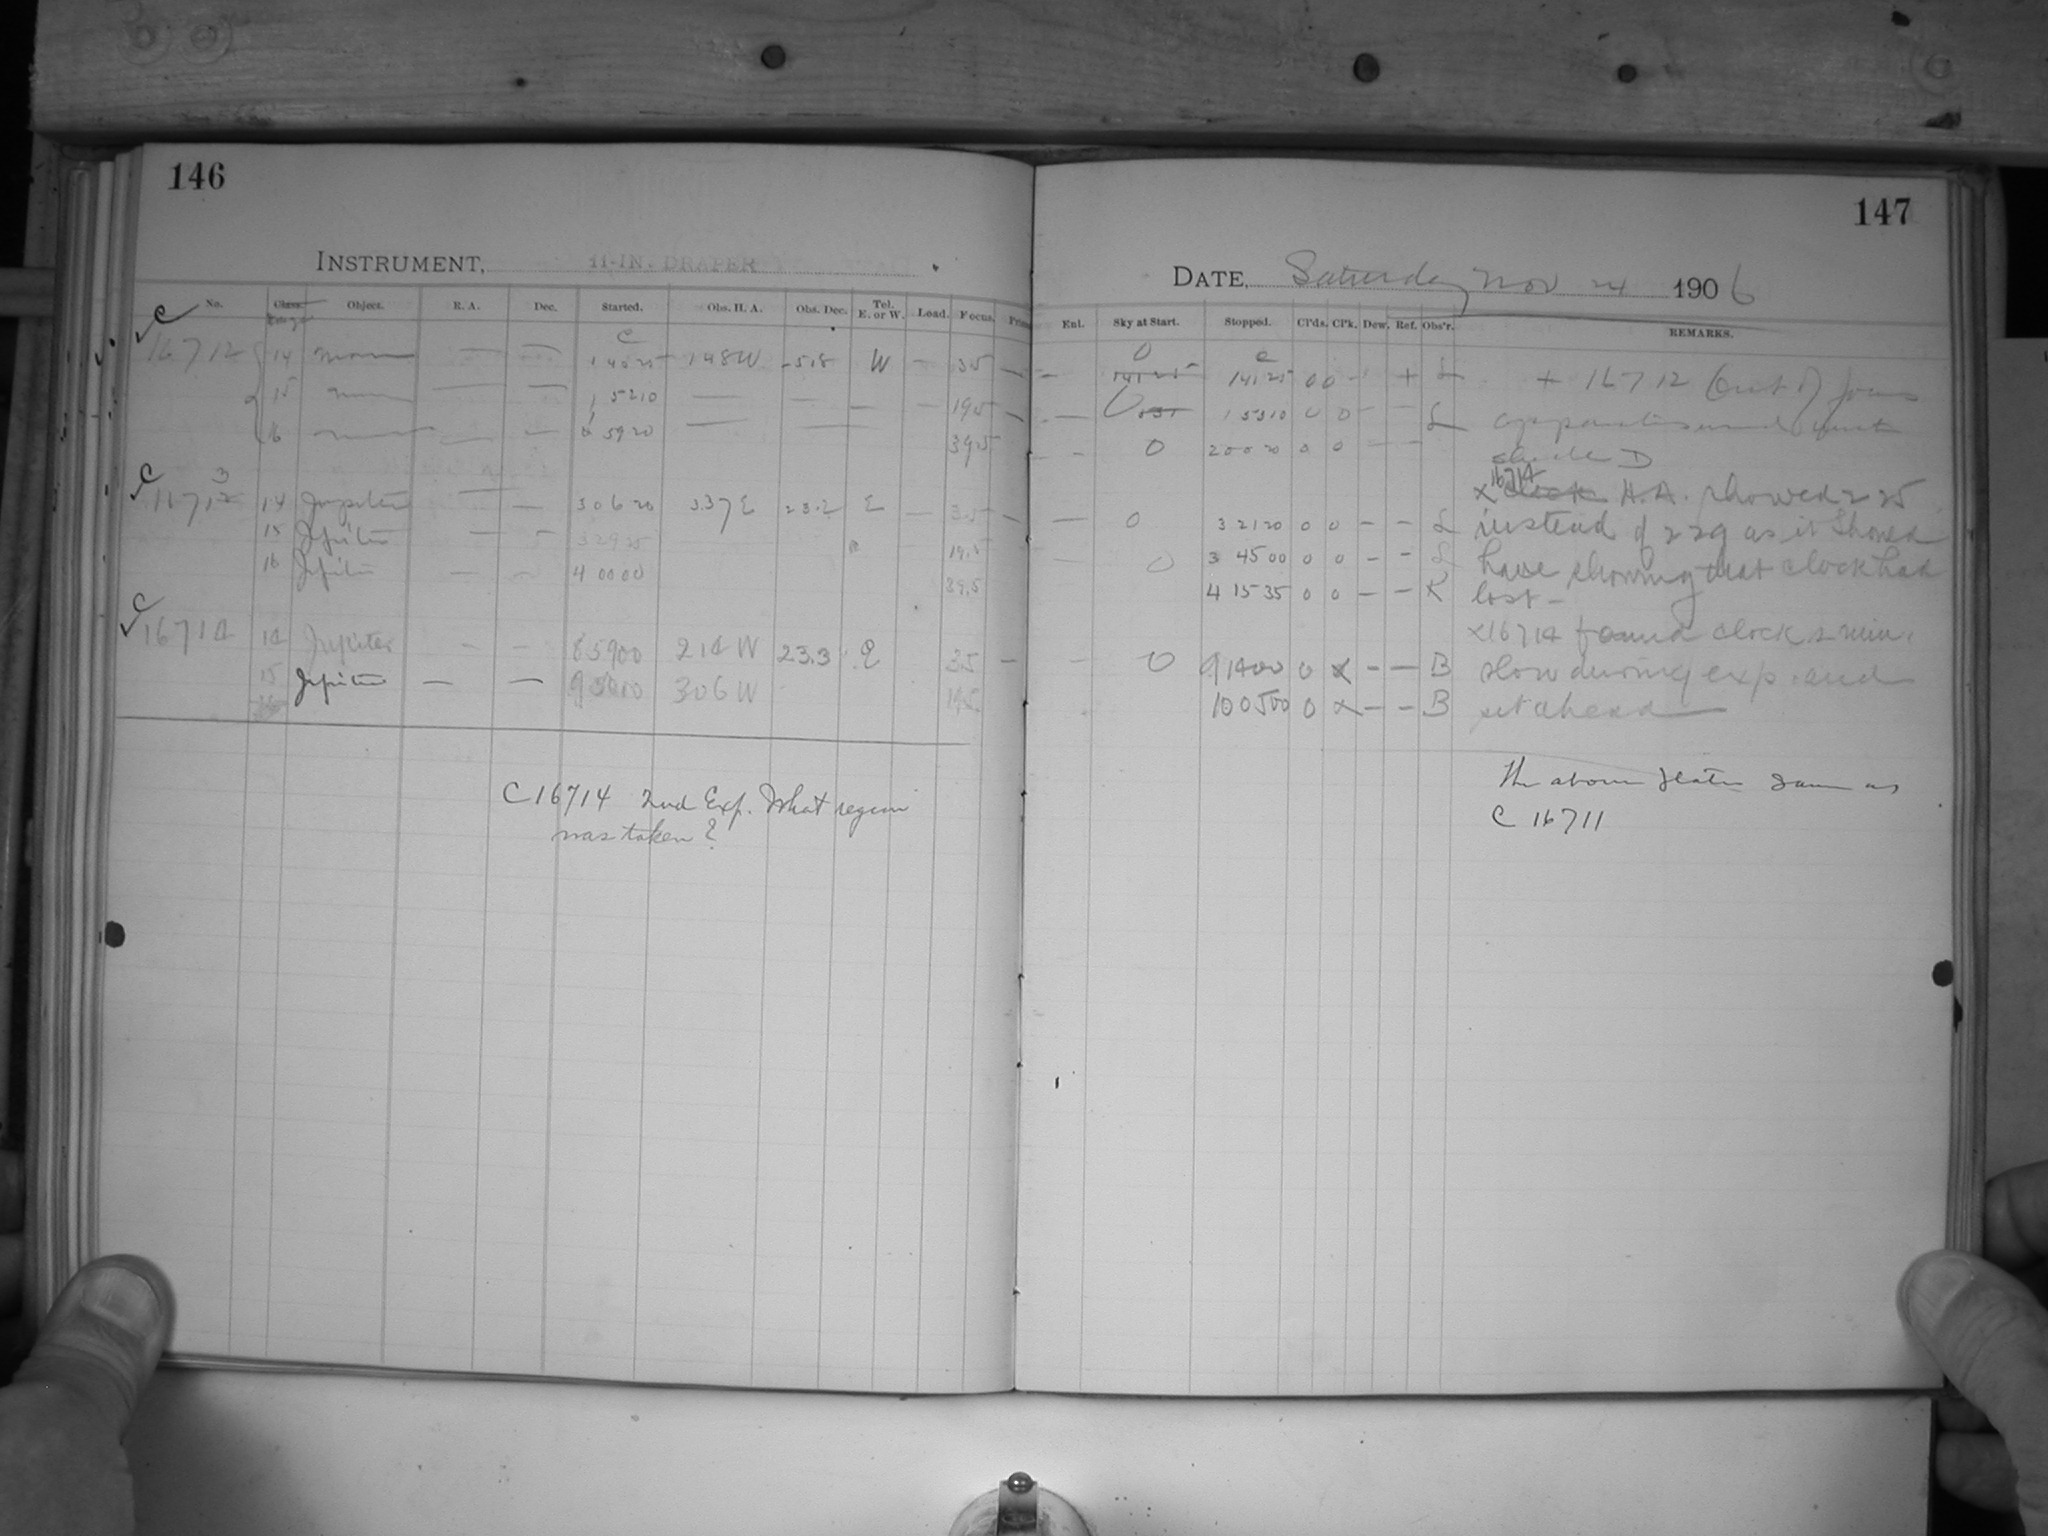 146
INSTRUMENT, 11-IN. DRAPER
No. Class Object. R. A. Dec. Started. Obs. H. A. Obs. Dec. Tel. E. or W. Load. Focus.
C
16712 14 Moon — — 14025 148W -5.8 W — 3.5 —
15 — — 1 5210 — — — — 19.5 —
16 — — 1 5920 — — 39.5
C 3
16712 14 Jupiter — — 30620 337E 23.2 E — 3.5 —
15 Jupiter — — 32925 19.5
16 Jupiter — — 4 0000 39.5
C
16714 14 Jupiter — — 85900 214W 23.3 E 3.5 —
15 Jupiter — — 306W 19.5
C 16714 2nd Exp. What region
was taken?
147
DATE, Saturday Nov 24 1906
Enl. Sky at Start. Stopped. Cl'ds. Cl'k. Dew. Ref. Obs'r. REMARKS.
— 0 14125 0 0 - + L + 16712 Out of focus
— 15310 0 0 - - L
- 0 20020 0 0 — —
D
x 16714 H.A. showed 2 25
— 0 3 2120 0 0 — — L instead of 2 29 as it should
— 0 3 4500 0 0 — - L have showing that clock had
4 1535 0 0 — — K lost —
x16714 found clock 2 min.
- 0 91400 0 x — — B slow during exp. and
100500 0 x — — B set ahead
The above plates same as
C 16711